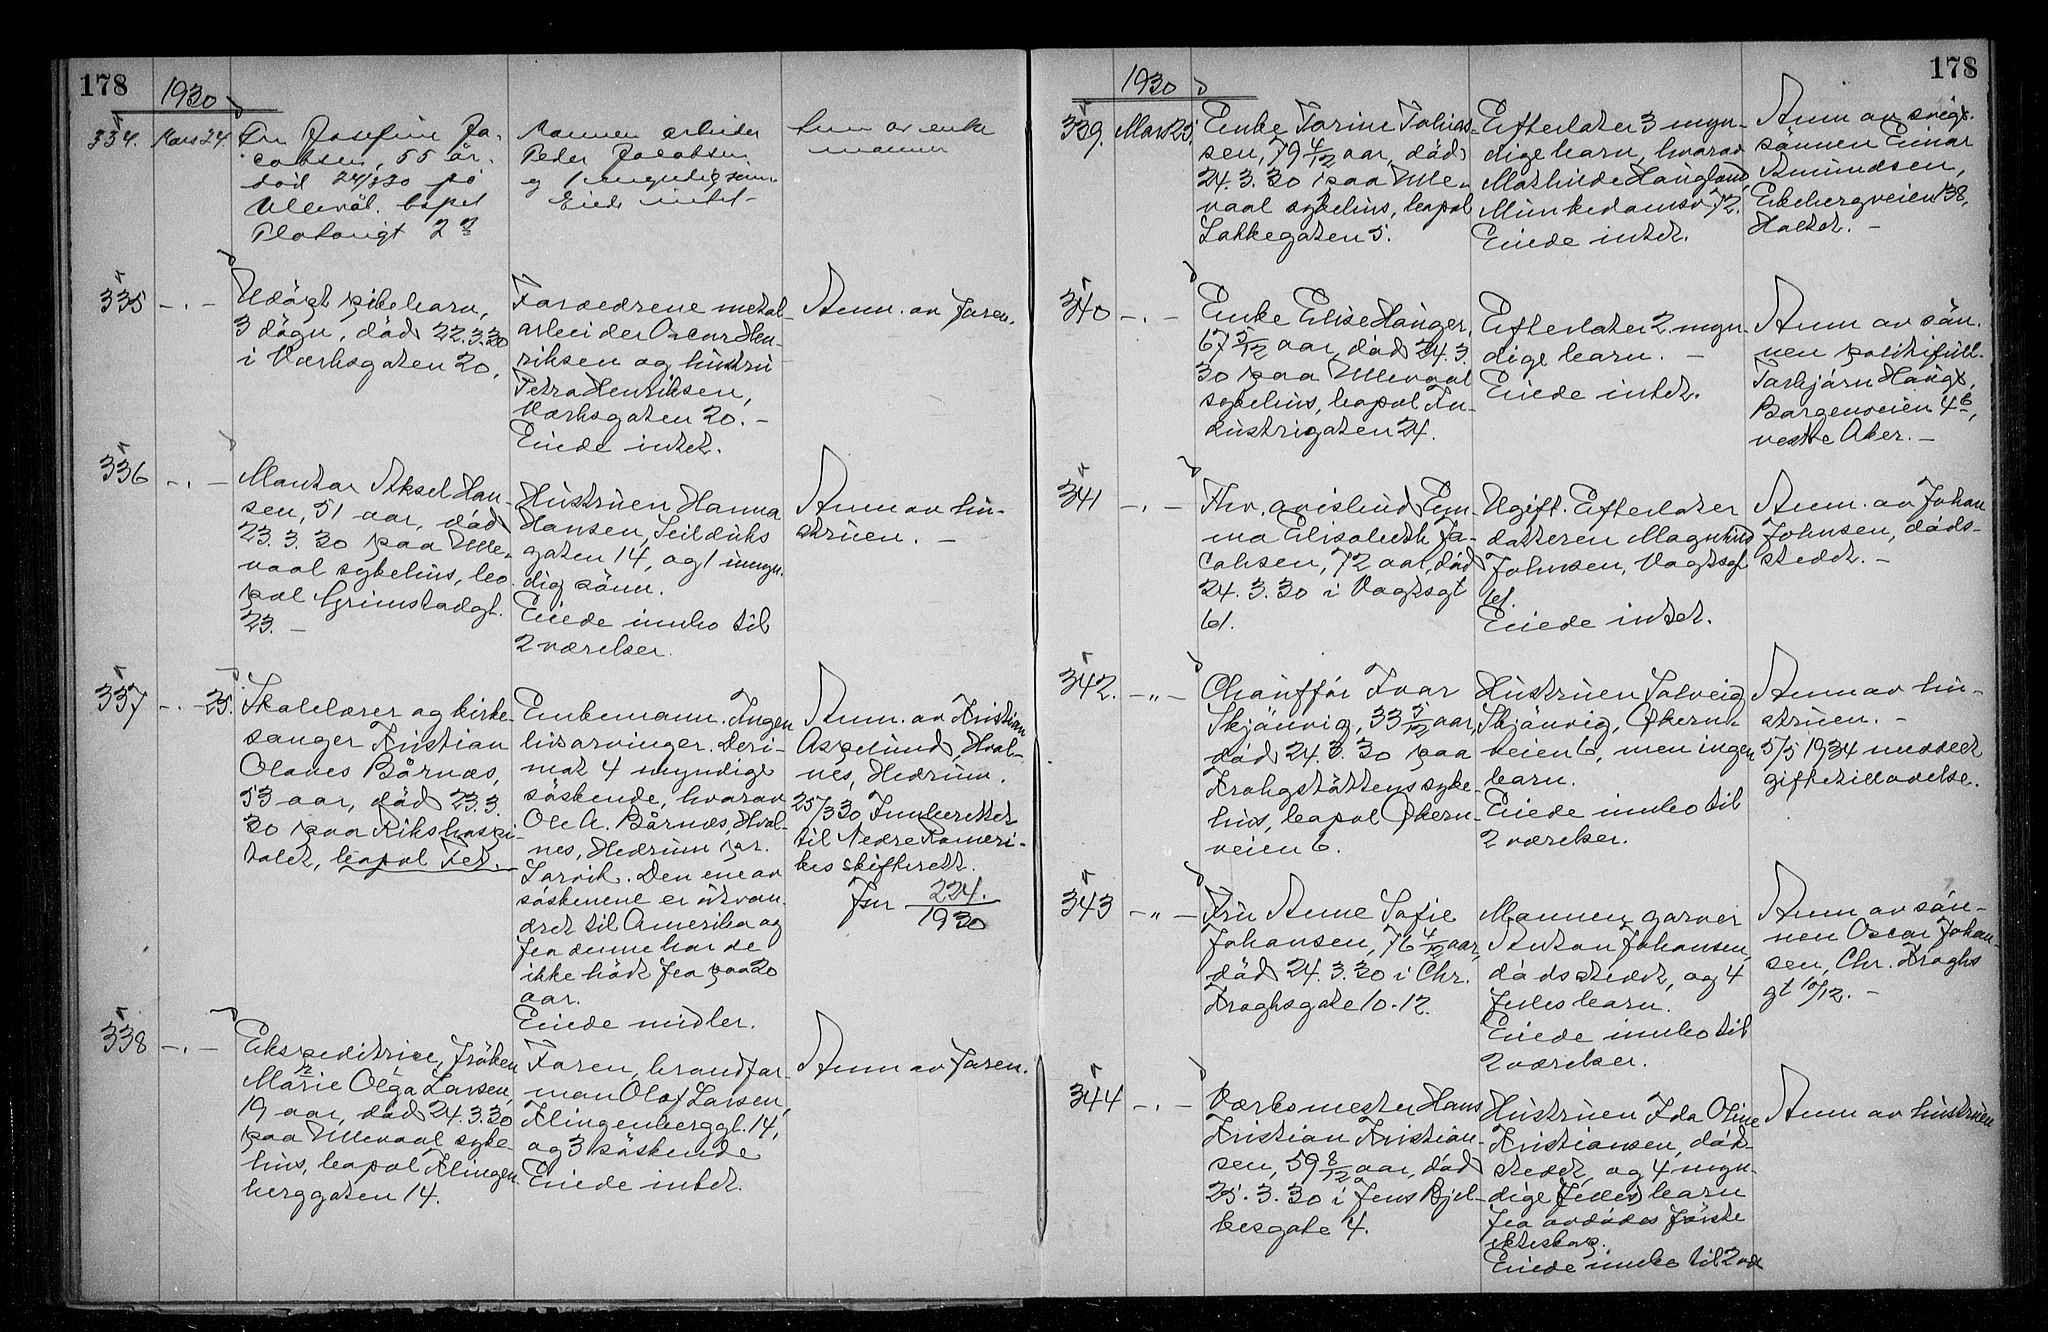 178
1930
334.
Mars 24.
Fru Josefine Ja-
cobsen, 55 år.
död 24/3 30 på
Ullevål. bopel
Platousgt 2
Mannen arbeider
Peder Jacobsen
og 1 umyndig sønn
Eiede intet
Anm av enke
mannen
335
- . -
Udöpt pikebarn,
3 dögn, död 22.3.30
i Værksgaten 20.
Forældrene metal-
arbeider Oscar Hen-
riksen og hustru
Petra Henriksen,
Værksgaten 20. -
Eiede intet.
Anm. av faren.
336
- . -
Montør Aksel Han-
sen, 51 aar, död
23.3.30 paa Ulle-
vaal sykehus, bo-
pæl Grimstadgt.
23. -
Hustruen Hanna
Hansen, Seilduks
gaten 14, og 1 umyn-
dig sönn.
Eiede innbo til
2 værelser.
Anm av hu-
struen. -
337
- . - 25.
Skolelærer og kirke-
sanger Kristian
Olaves Bårnæs,
53 aar, död 23.3.
30 paa Rikshospi-
talet, bopæl Fet.
Enkemann. Ingen
livsarvinger. Deri-
mot 4 myndige
söskende, hvorav
Ole A. Bårnæs, Hval-
nes, Hedrum pr.
Larvik. Den ene av
söskenene er utvan-
dret til Amerika og
fra denne har de
ikke hört fra paa 20
aar.
Eiede midler.
Anm. av Kristian
Aspelund, Hval-
nes, Hedrum.
25/3 30 Innberettet
til Nedre Romeri-
kes skifterett.
Jnr 224.
1930
338
- . -
Ekspeditrice, fröken
Marie Olga Larsen,
19 aar, död 24.3.30
paa Ullevaal syke-
hus, bopæl Klingen-
berggaten 14.
Faren, brandfor-
man Olaf Larsen,
Klingenberggt. 14,
og 3 söskende
Eiede intet.
Anm av faren.
178
1930
339.
Mars 25.
Enke Torine Tobias-
sen, 79 4/12 aar, död
24.3.30 paa Ulle-
vaal sykehus, bopæl
Lakkegaten 5.
Efterlater 3 myn-
dige barn, hvorav
Mathilde Haugland,
Munkedamsv 72.
Eiede intet.
Anm av svige-
sönnen Einar
Amundsen,
Ekebergveien 138,
Holtet. -
340
- . -
Enke Elise Hauger,
67 5/12 aar, död 24.3.
30 paa Ullevaal
sykehus, bopæl In-
dustrigaten 24.
Efterlater 2 myn-
dige barn. -
Eiede intet.
Anm av sön-
nen politifull.
Torbjörn Haugs,
Borgenveien 4 b,
vestre Aker. -
341
- . -
Fhv. avisbud Em-
ma Elisabeth Ja-
cobsen, 72 aar, död
24.3.30 i Vogtsgt
61.
Ugift. Efterlater
datteren Magnhild
Johnsen, Vogtsgt
61.
Eiede intet.
Anm. av Johan
Johnsen, döds-
stedet. -
342.
- „ -
Chaufför Ivar
Skjönvig, 33 5/12 aar,
död 24.3.30 paa
Krohgstöttens syke-
hus, bopæl Økern-
veien 6.
Hustruen Solveig
Skjönvig, Økern-
veien 6, men ingen
barn.
Eiede innbo til
2 værelser.
Anm av hu-
struen. -
5/5 1934 meddelt
giftetillatelse.
343
- „ -
Fru Anne Sofie
Johansen, 76 4/12 aar,
död 24.3.30 i Chr.
Kroghsgate 10-12.
Mannen, garver
Anton Johansen,
dödsstedet, og 4
felles barn.
Eiede innbo til
2 værelser.
Anm av sön-
nen Oscar Johan-
sen, Chr. Kroghs
gt 10/12. -
344
- . -
Værksmester Hans
Kristian Kristian-
sen, 59 8/12 aar, död
25.3.30 i Jens Bjel-
kesgate 4.
Hustruen Ida Oline
Kristiansen, död-
stedet, og 4 myn-
dige felles barn
fra avdödes förste
ekteskap.
Eiede innbo til 2 vær
Anm av hustruen